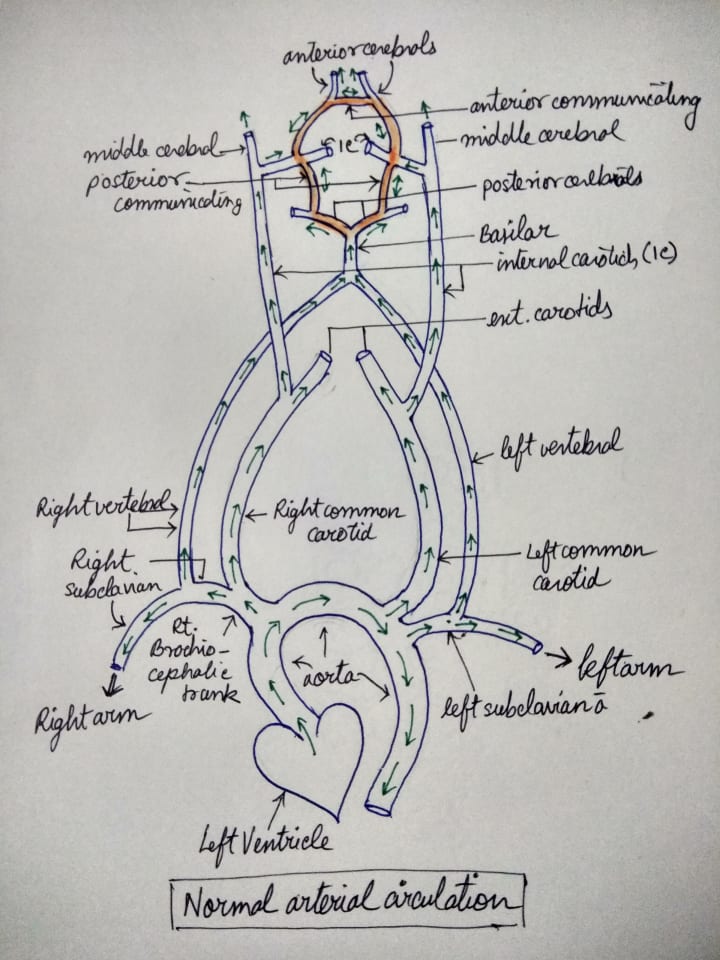 anterior cerebrals
anterior communicating
middle cerebral
middle cerebral
IC
posterior
communicating
posterior cerebrals
Basilar
internal carotids (IC)
ext. carotids
left vertebral
Right vertebral
Right common
carotid
Right
subclavian
Left common
carotid
Rt.
Brachio-
cephalic
trunk
aorta
left arm
left subclavian ā
Right arm
Left Ventricle
Normal arterial circulation